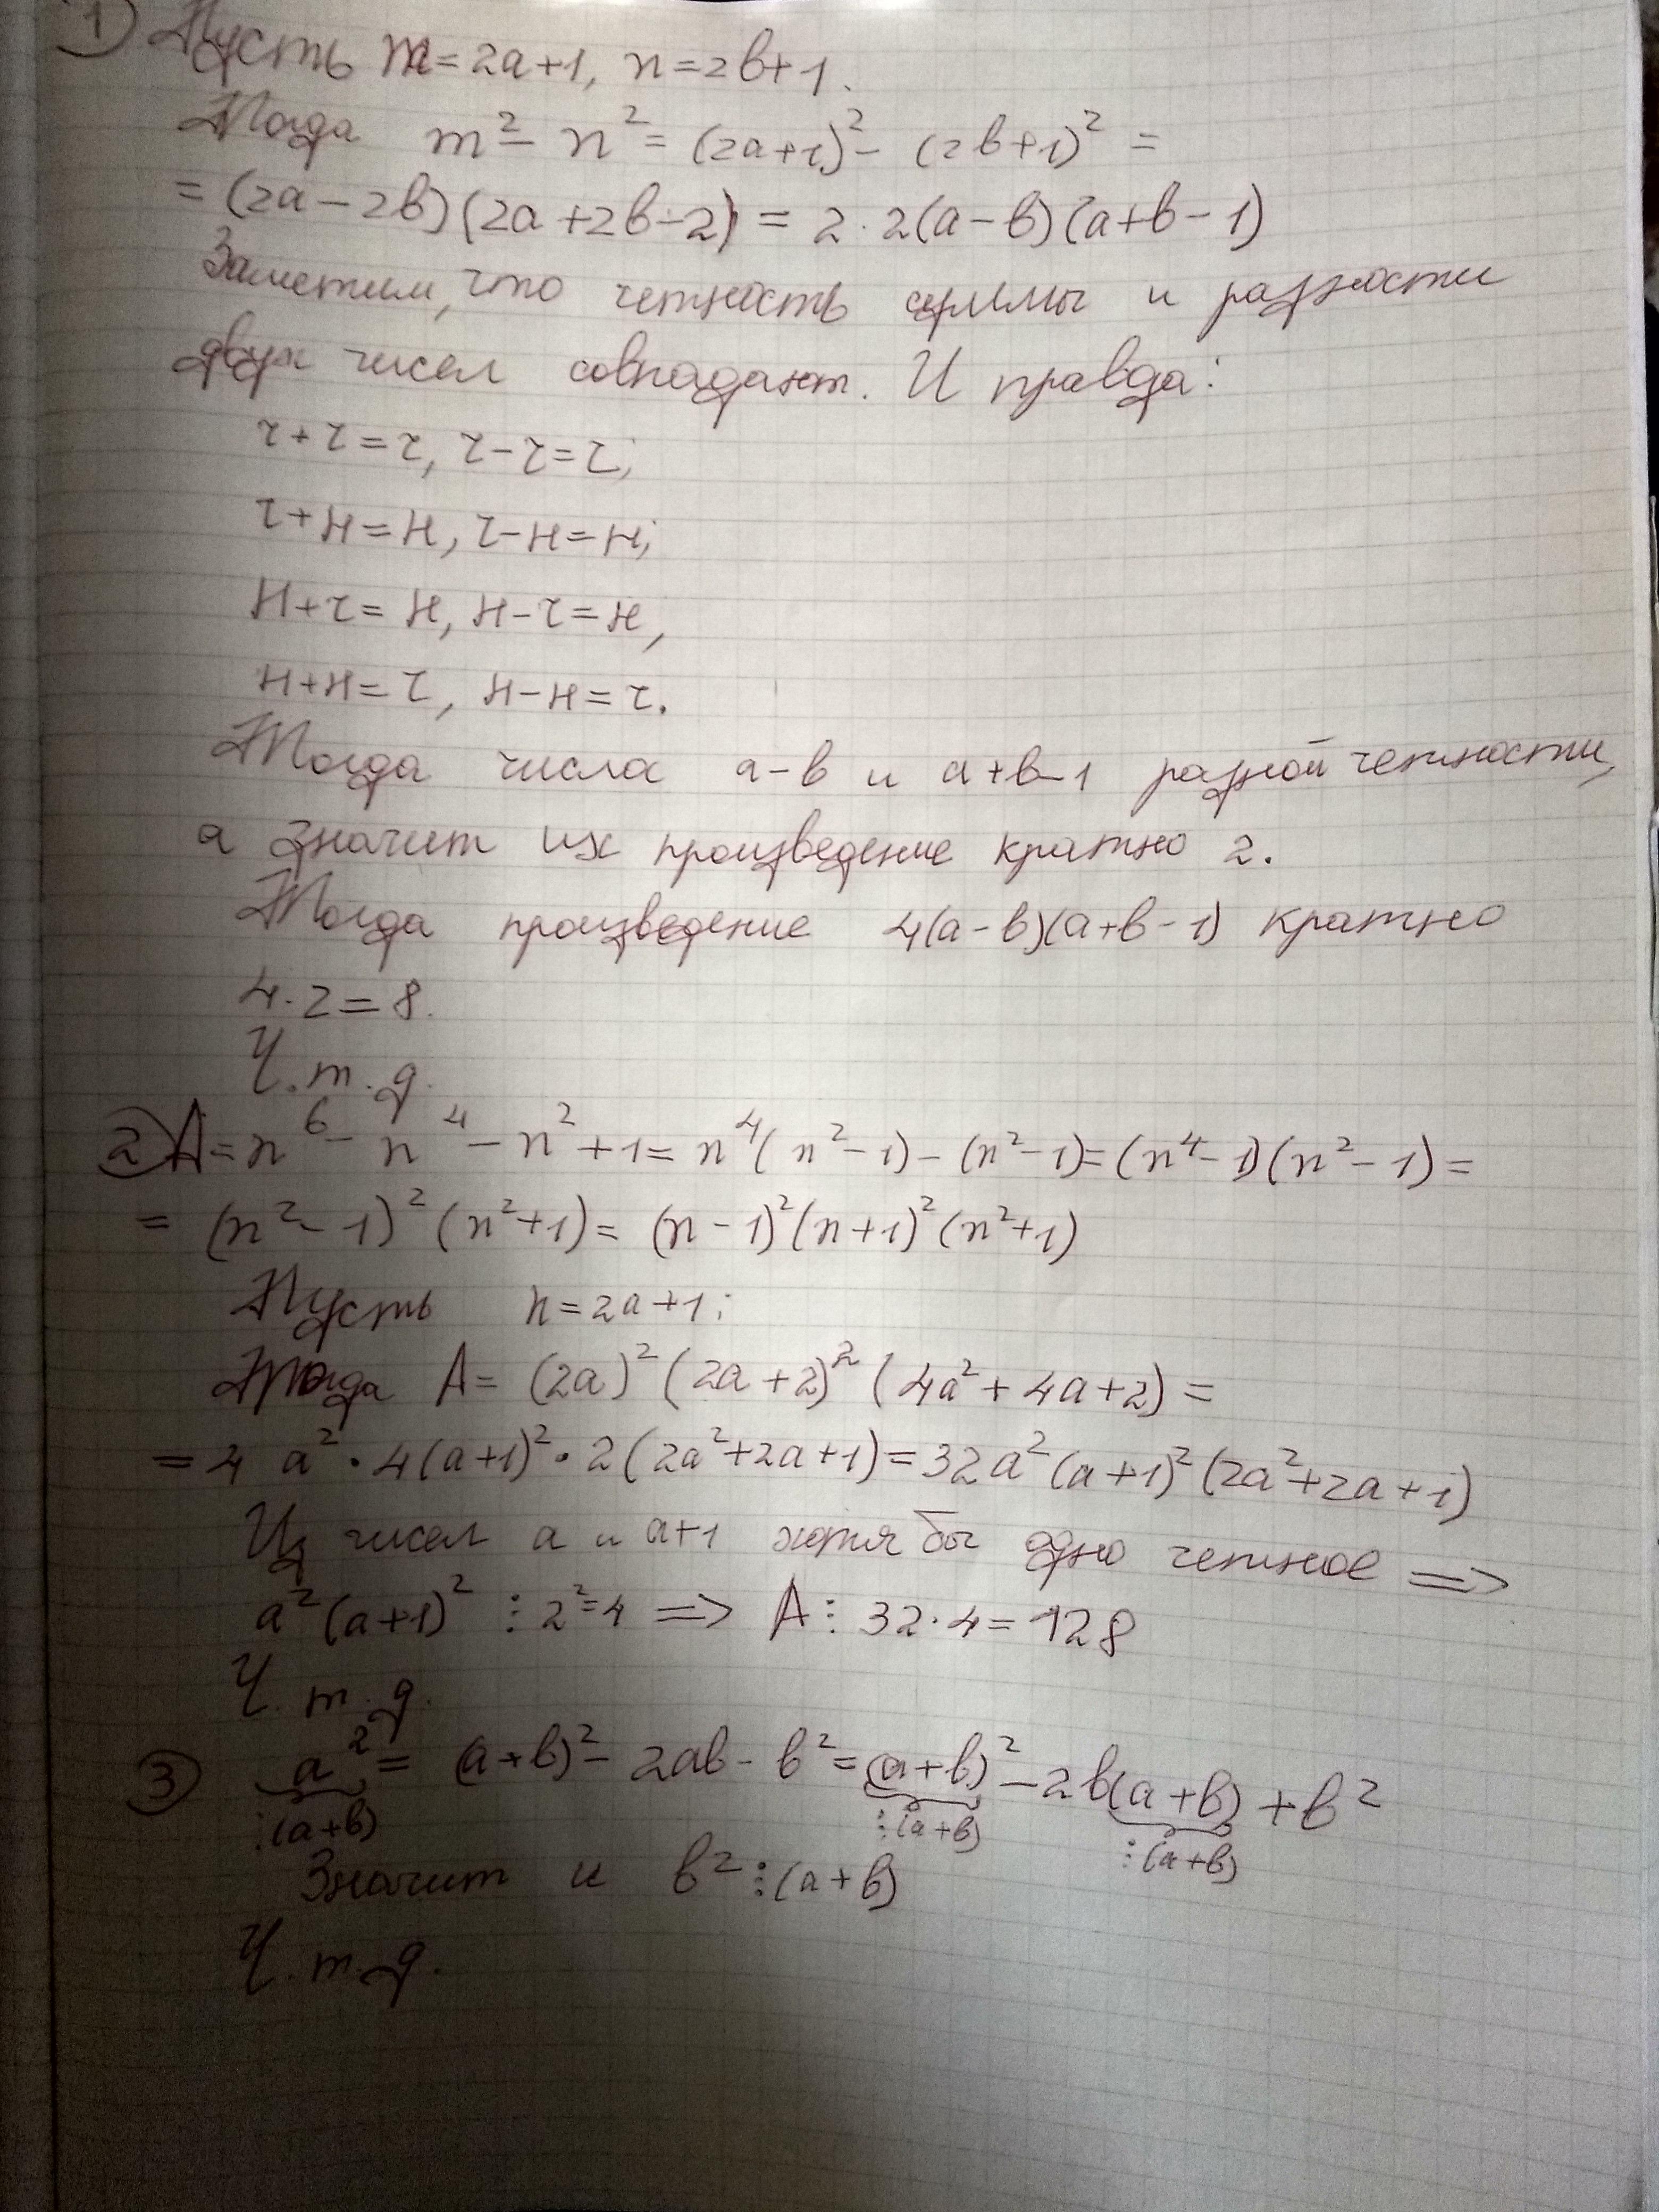 1) Пусть m=2a+1, n=2b+1.
Тогда m² - n² = (2a+1)² - (2b+1)² =
= (2a-2b)(2a+2b-2) = 2·2(a-b)(a+b-1)
Заметим, что четность суммы и разности
двух чисел совпадают. И правда:
ч+ч=ч, ч-ч=ч;
ч+н=н, ч-н=н;
н+ч=н, н-ч=н,
н+н=ч, н-н=ч.
Тогда числа a-b и a+b-1 разной четности,
а значит их произведение кратно 2.
Тогда произведение 4(a-b)(a+b-1) кратно
4·2=8.
Ч.т.д.
2) A=n⁶-n⁴-n²+1=n⁴(n²-1)-(n²-1)=(n⁴-1)(n²-1)=
= (n²-1)²(n²+1)= (n-1)²(n+1)²(n²+1)
Пусть n=2a+1;
Тогда A= (2a)²(2a+2)²(4a²+4a+2)=
=4a²·4(a+1)²·2(2a²+2a+1)=32a²(a+1)²(2a²+2a+1)
Из чисел a и a+1 хотя бы одно четное =>
a²(a+1)² ⋮ 2²=4 => A ⋮ 32·4=128
Ч.т.д.
3) a² = (a+b)² - 2ab - b² = (a+b)² - 2b(a+b) + b²
⋮(a+b) ⋮(a+b) ⋮(a+b)
Значит и b² ⋮ (a+b)
Ч.т.д.